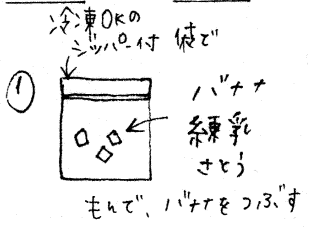 冷凍OKの
ジッパー付 袋で
①
バナナ
練乳
さとう
もんで、バナナをつぶす